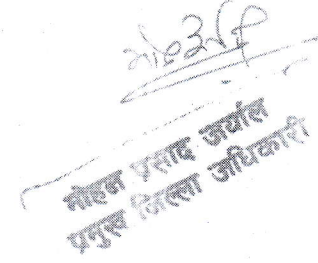 मोहन प्रसाद जर्घाल
प्रमुख जिल्ला अधिकारी